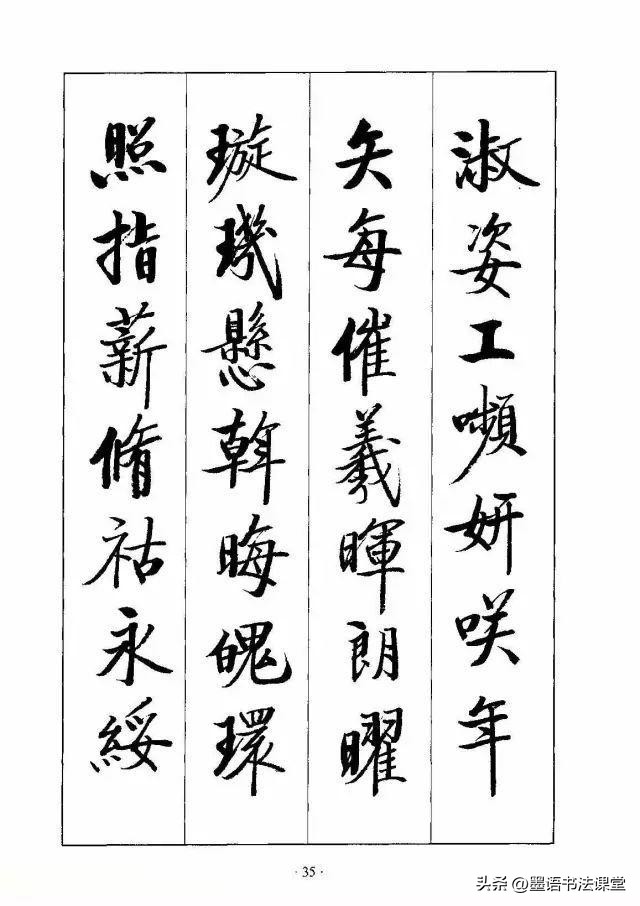 淑姿工嚬妍咲年
矢每催羲暉朗曜
璇璣懸斡晦魄環
照指薪脩祜永綏
· 35 ·
头条@墨语书法课堂